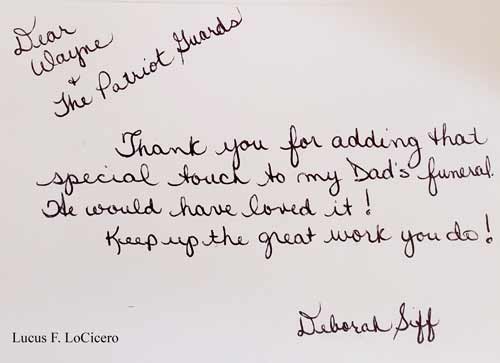 Dear
Wayne
&
The Patriot Guards
Thank you for adding that
special touch to my Dad's funeral.
He would have loved it!
Keep up the great work you do!
Deborah Siff
Lucus F. LoCicero